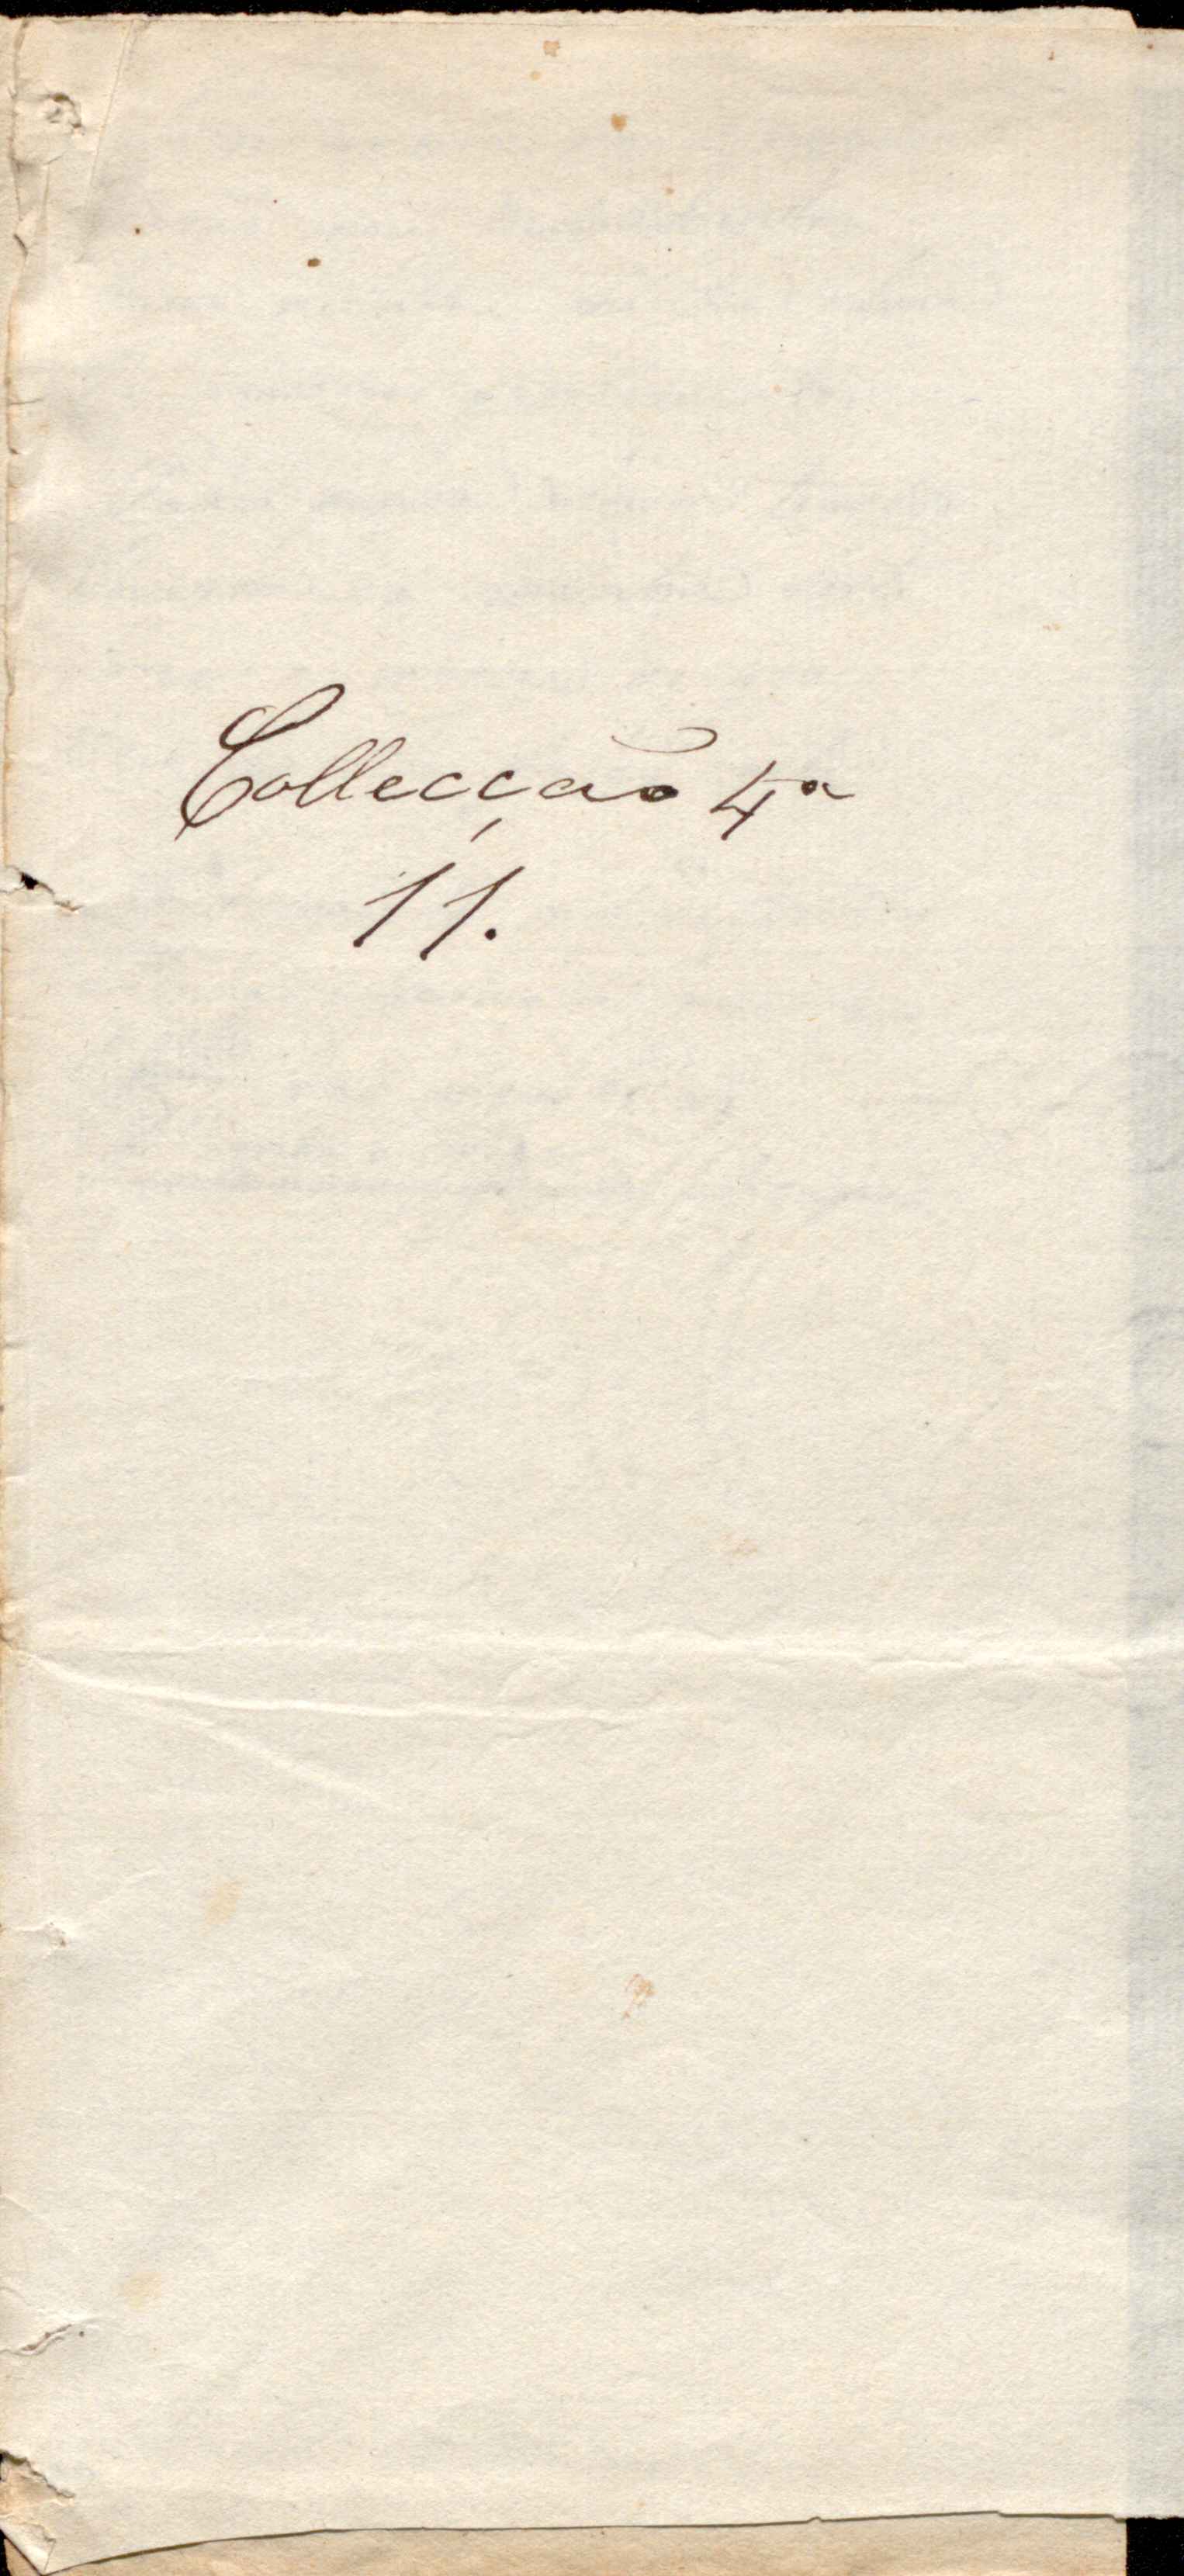 Collecção 4ª
11.